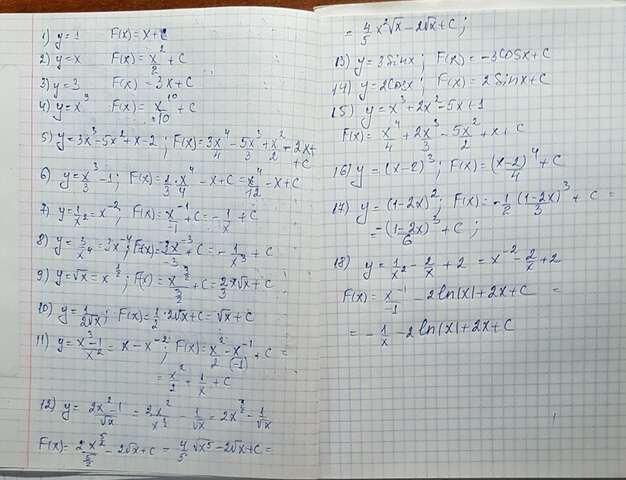 1) y=1 F(x)=x+C
2) y=x F(x)=x²/2+C
3) y=3 F(x)=3x+C
4) y=x⁹ F(x)=x¹⁰/10+C
5) y=3x³-5x²+x-2; F(x)=3x⁴/4-5x³/3+x²/2-2x+
+C
6) y=x³/3-1; F(x)=1/3·x⁴/4-x+C=x⁴/12-x+C
7) y=1/x²=x⁻², F(x)=x⁻¹/-1+C=-1/x+C
8) y=3/x⁴=3x⁻⁴; F(x)=3x⁻³/-3+C=-1/x³+C
9) y=√x=x^(1/2); F(x)=x^(3/2)/(3/2)+C=2/3x√x+C
10) y=1/(2√x); F(x)=1/2·2√x+C=√x+C
11) y=(x³-1)/x²=x-x⁻²; F(x)=x²/2-x⁻¹/(-1)+C=
=x²/2+1/x+C
12) y=(2x²-1)/√x=2x²/x^(1/2)-1/√x=2x^(3/2)-1/√x
F(x)=2x^(5/2)/(5/2)-2√x+C=4/5√x⁵-2√x+C=
=4/5x²√x-2√x+C;
13) y=3sinx; F(x)=-3cosx+C
14) y=2cosx; F(x)=2sinx+C
15) y=x³+2x²-5x+1
F(x)=x⁴/4+2x³/3-5x²/2+x+C
16) y=(x-2)³; F(x)=(x-2)⁴/4+C
17) y=(1-2x)²; F(x)=-1/2(1-2x)³/3+C=
=-(1-2x)³/6+C;
18) y=1/x²-2/x+2=x⁻²-2/x+2
F(x)=x⁻¹/-1-2ln|x|+2x+C=
=-1/x-2ln|x|+2x+C